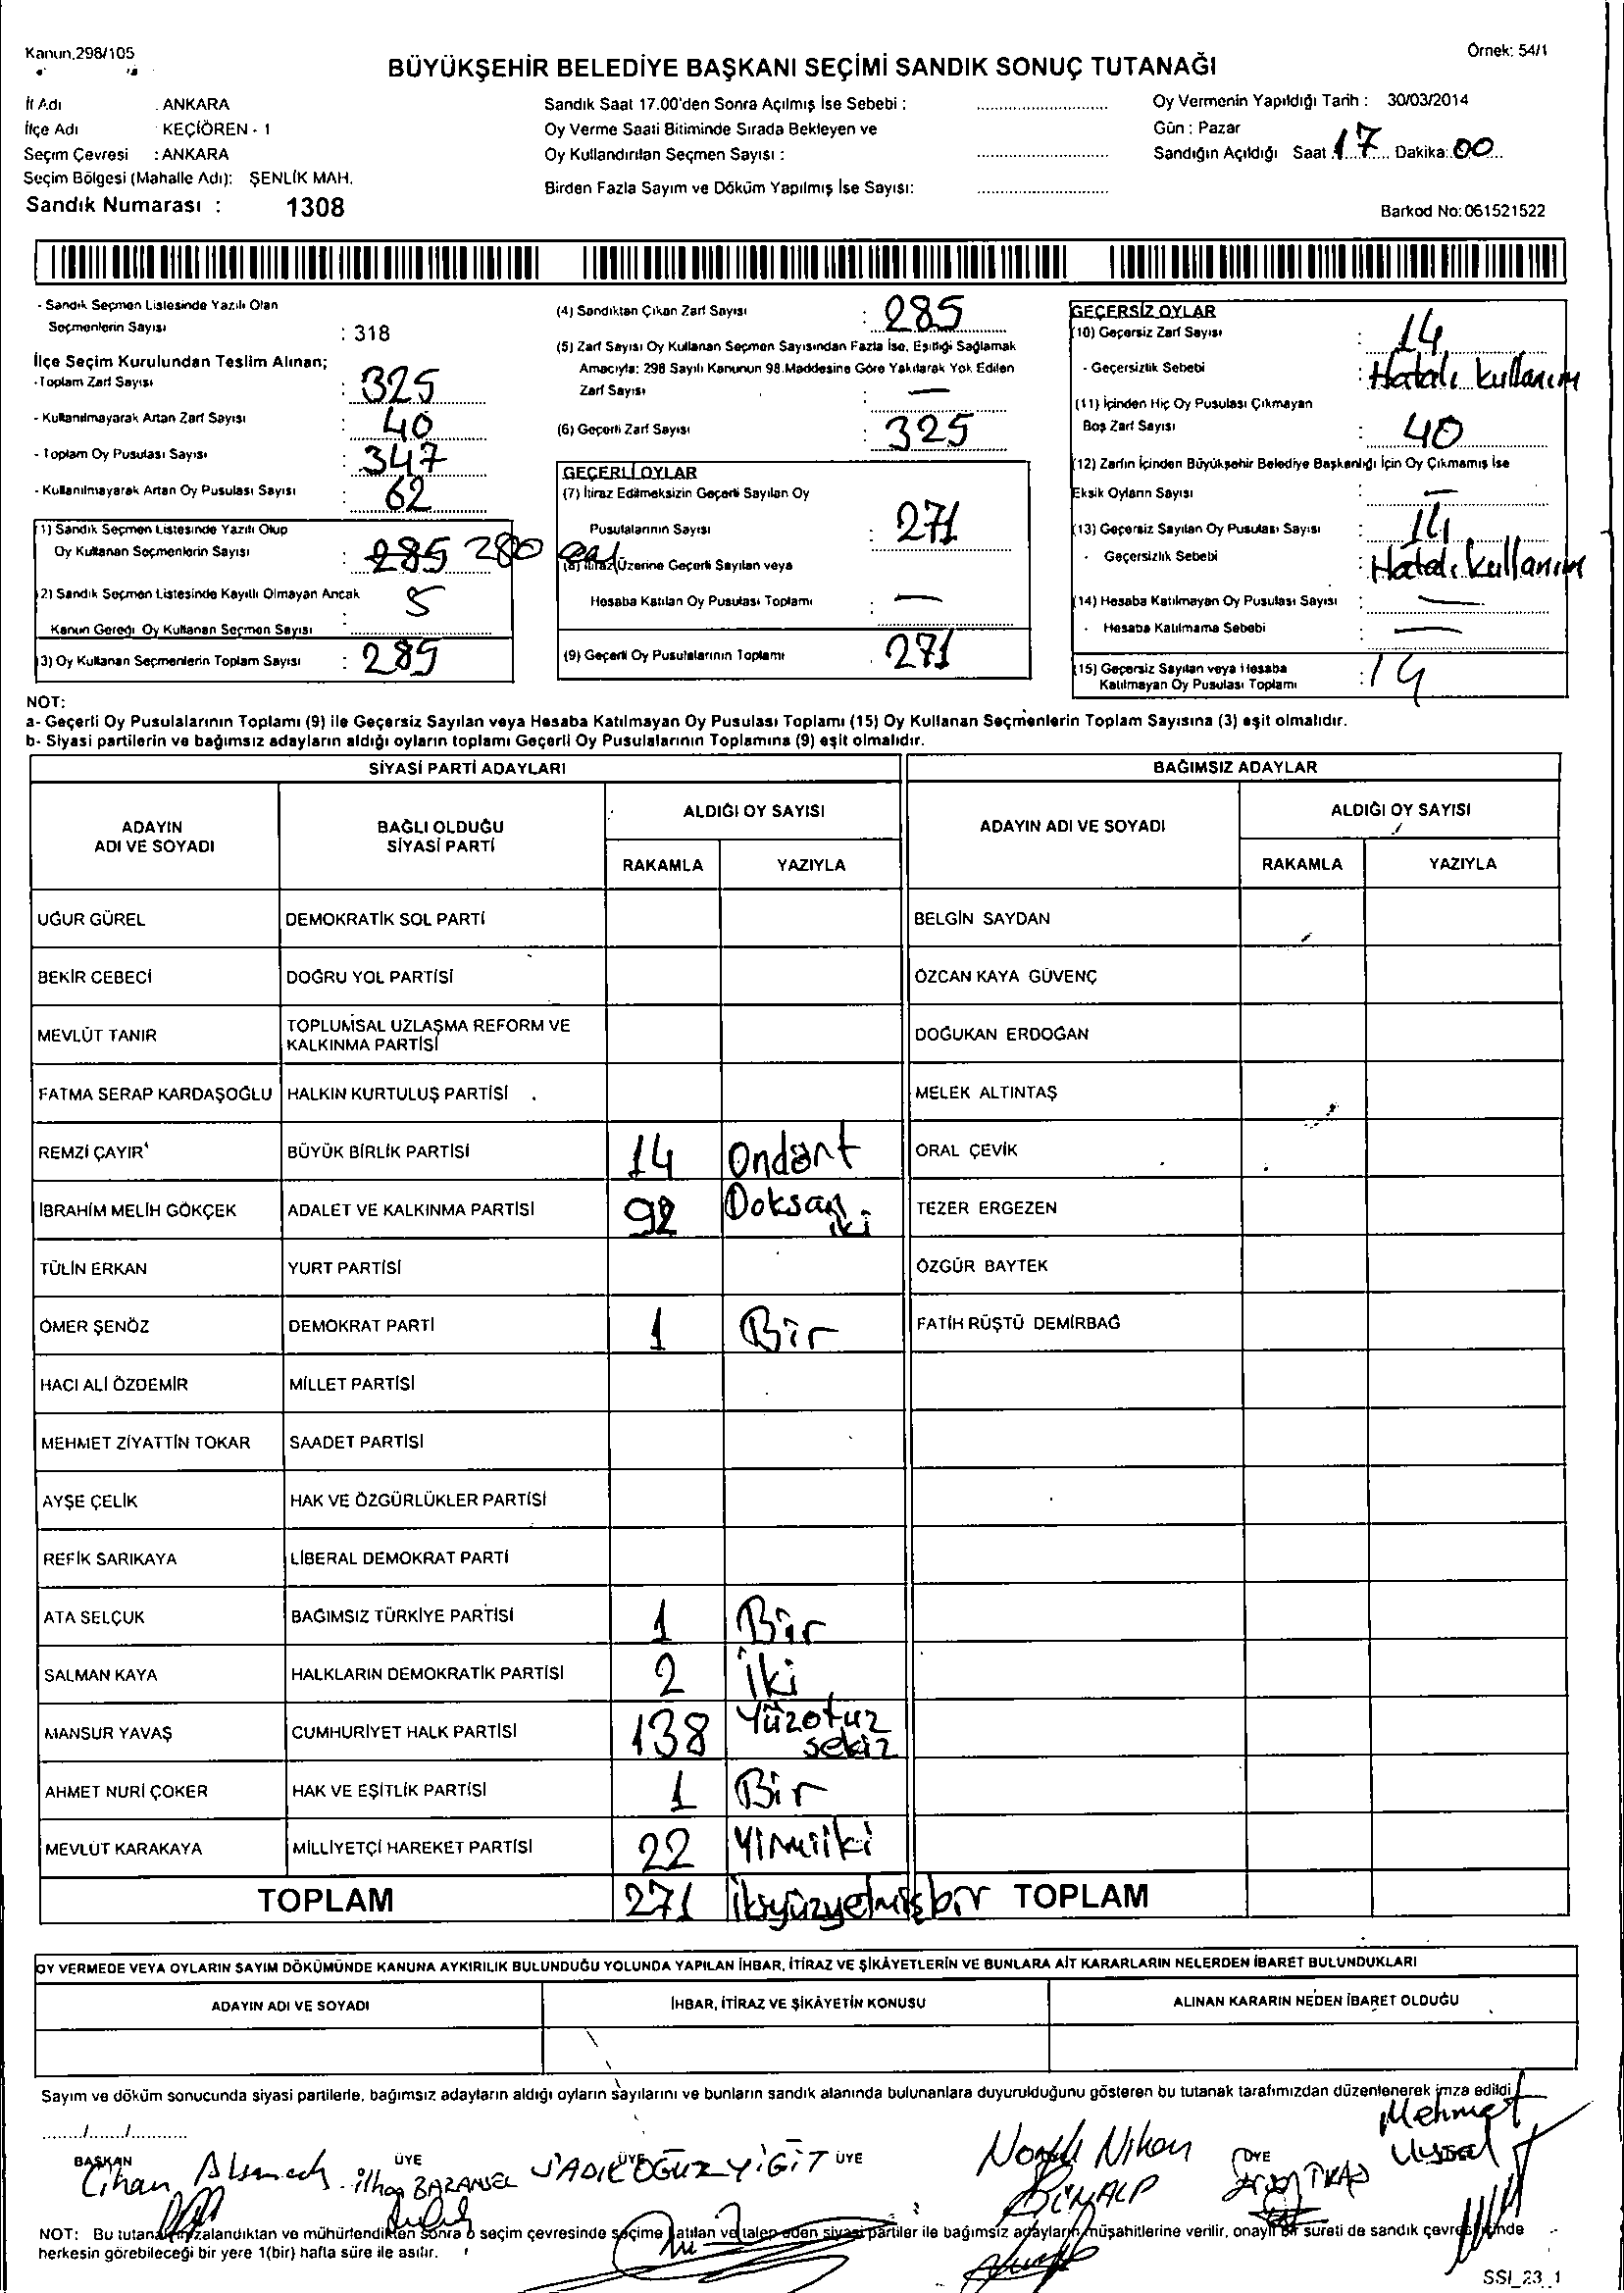 Kanun.298/105
Örnek: 54/1
BÜYÜKŞEHİR BELEDİYE BAŞKANI SEÇİMİ SANDIK SONUÇ TUTANAĞI
İl Adı : ANKARA
İlçe Adı : KEÇİÖREN - 1
Seçim Çevresi : ANKARA
Seçim Bölgesi (Mahalle Adı): ŞENLİK MAH.
Sandık Numarası : 1308
Sandık Saat 17.00'den Sonra Açılmış İse Sebebi :
Oy Verme Saati Bitiminde Sırada Bekleyen ve
Oy Kullandırılan Seçmen Sayısı :
Birden Fazla Sayım ve Döküm Yapılmış İse Sayısı:
Oy Vermenin Yapıldığı Tarih : 30/03/2014
Gün : Pazar
Sandığın Açıldığı Saat 17 Dakika: 00
Barkod No: 061521522
- Sandık Seçmen Listesinde Yazılı Olan
Seçmenlerin Sayısı : 318
İlçe Seçim Kurulundan Teslim Alınan;
-Toplam Zarf Sayısı : 325
- Kullanılmayarak Artan Zarf Sayısı : 40
- Toplam Oy Pusulası Sayısı : 347
- Kullanılmayarak Artan Oy Pusulası Sayısı : 62
1) Sandık Seçmen Listesinde Yazılı Olup
Oy Kullanan Seçmenlerin Sayısı : 285 280
2) Sandık Seçmen Listesinde Kayıtlı Olmayan Ancak
Kanun Gereği Oy Kullanan Seçmen Sayısı : 5
3) Oy Kullanan Seçmenlerin Toplam Sayısı : 285
(4) Sandıktan Çıkan Zarf Sayısı : 285
(5) Zarf Sayısı Oy Kullanan Seçmen Sayısından Fazla İse, Eşitliği Sağlamak
Amacıyla: 298 Sayılı Kanunun 98.Maddesine Göre Yakılarak Yok Edilen
Zarf Sayısı : —
(6) Geçerli Zarf Sayısı : 325
GEÇERLİ OYLAR
(7) İtiraz Edilmeksizin Geçerli Sayılan Oy
Pusulalarının Sayısı : 271
(8) İtiraz Üzerine Geçerli Sayılan veya
Hesaba Katılan Oy Pusulası Toplamı : —
(9) Geçerli Oy Pusulalarının Toplamı 271
GEÇERSİZ OYLAR
(10) Geçersiz Zarf Sayısı : 14
- Geçersizlik Sebebi : Hatalı kullanım
(11) İçinden Hiç Oy Pusulası Çıkmayan
Boş Zarf Sayısı : 40
(12) Zarfın İçinden Büyükşehir Belediye Başkanlığı İçin Oy Çıkmamış İse
Eksik Oyların Sayısı : —
(13) Geçersiz Sayılan Oy Pusulası Sayısı : 14
- Geçersizlik Sebebi : Hatalı kullanım
(14) Hesaba Katılmayan Oy Pusulası Sayısı : —
- Hesaba Katılmama Sebebi : —
(15) Geçersiz Sayılan veya Hesaba
Katılmayan Oy Pusulası Toplamı : 14
NOT:
a- Geçerli Oy Pusulalarının Toplamı (9) ile Geçersiz Sayılan veya Hesaba Katılmayan Oy Pusulası Toplamı (15) Oy Kullanan Seçmenlerin Toplam Sayısına (3) eşit olmalıdır.
b- Siyasi partilerin ve bağımsız adayların aldığı oyların toplamı Geçerli Oy Pusulalarının Toplamına (9) eşit olmalıdır.
SİYASİ PARTİ ADAYLARI BAĞIMSIZ ADAYLAR
ADAYIN ADI VE SOYADI BAĞLI OLDUĞU SİYASİ PARTİ ALDIĞI OY SAYISI ADAYIN ADI VE SOYADI ALDIĞI OY SAYISI
RAKAMLA YAZIYLA RAKAMLA YAZIYLA
UĞUR GÜREL DEMOKRATİK SOL PARTİ BELGİN SAYDAN
BEKİR CEBECİ DOĞRU YOL PARTİSİ ÖZCAN KAYA GÜVENÇ
MEVLÜT TANIR TOPLUMSAL UZLAŞMA REFORM VE KALKINMA PARTİSİ DOĞUKAN ERDOĞAN
FATMA SERAP KARDAŞOĞLU HALKIN KURTULUŞ PARTİSİ MELEK ALTINTAŞ
REMZİ ÇAYIR BÜYÜK BİRLİK PARTİSİ 14 Ondört ORAL ÇEVİK
İBRAHİM MELİH GÖKÇEK ADALET VE KALKINMA PARTİSİ 92 Doksan iki TEZER ERGEZEN
TÜLİN ERKAN YURT PARTİSİ ÖZGÜR BAYTEK
ÖMER ŞENÖZ DEMOKRAT PARTİ 1 Bir FATİH RÜŞTÜ DEMİRBAĞ
HACI ALİ ÖZDEMİR MİLLET PARTİSİ
MEHMET ZİYATTİN TOKAR SAADET PARTİSİ
AYŞE ÇELİK HAK VE ÖZGÜRLÜKLER PARTİSİ
REFİK SARIKAYA LİBERAL DEMOKRAT PARTİ
ATA SELÇUK BAĞIMSIZ TÜRKİYE PARTİSİ 1 Bir
SALMAN KAYA HALKLARIN DEMOKRATİK PARTİSİ 2 İki
MANSUR YAVAŞ CUMHURİYET HALK PARTİSİ 138 Yüzotuz sekiz
AHMET NURİ ÇOKER HAK VE EŞİTLİK PARTİSİ 1 Bir
MEVLÜT KARAKAYA MİLLİYETÇİ HAREKET PARTİSİ 22 Yirmiiki
TOPLAM 271 ikiyüzyetmişbir TOPLAM
OY VERMEDE VEYA OYLARIN SAYIM DÖKÜMÜNDE KANUNA AYKIRILIK BULUNDUĞU YOLUNDA YAPILAN İHBAR, İTİRAZ VE ŞİKÂYETLERİN VE BUNLARA AİT KARARLARIN NELERDEN İBARET BULUNDUKLARI
ADAYIN ADI VE SOYADI İHBAR, İTİRAZ VE ŞİKÂYETİN KONUSU ALINAN KARARIN NEDEN İBARET OLDUĞU
Sayım ve döküm sonucunda siyasi partilerle, bağımsız adayların aldığı oyların sayılarını ve bunların sandık alanında bulunanlara duyurulduğunu gösteren bu tutanak tarafımızdan düzenlenerek imza edildi
......../......../...........
BAŞKAN ÜYE ÜYE ÜYE ÜYE
Cihan İlhan BAZANSEL SADIK OĞUZ YİĞİT Nihan BİNALP Mehmet Uysal
NOT: Bu tutanak imzalandıktan ve mühürlendikten sonra o seçim çevresinde seçime katılan ve talep eden siyasi partiler ile bağımsız adayların müşahitlerine verilir, onaylı bir sureti de sandık çevresinde
herkesin görebileceği bir yere 1(bir) hafta süre ile asılır.
SSI_23_1